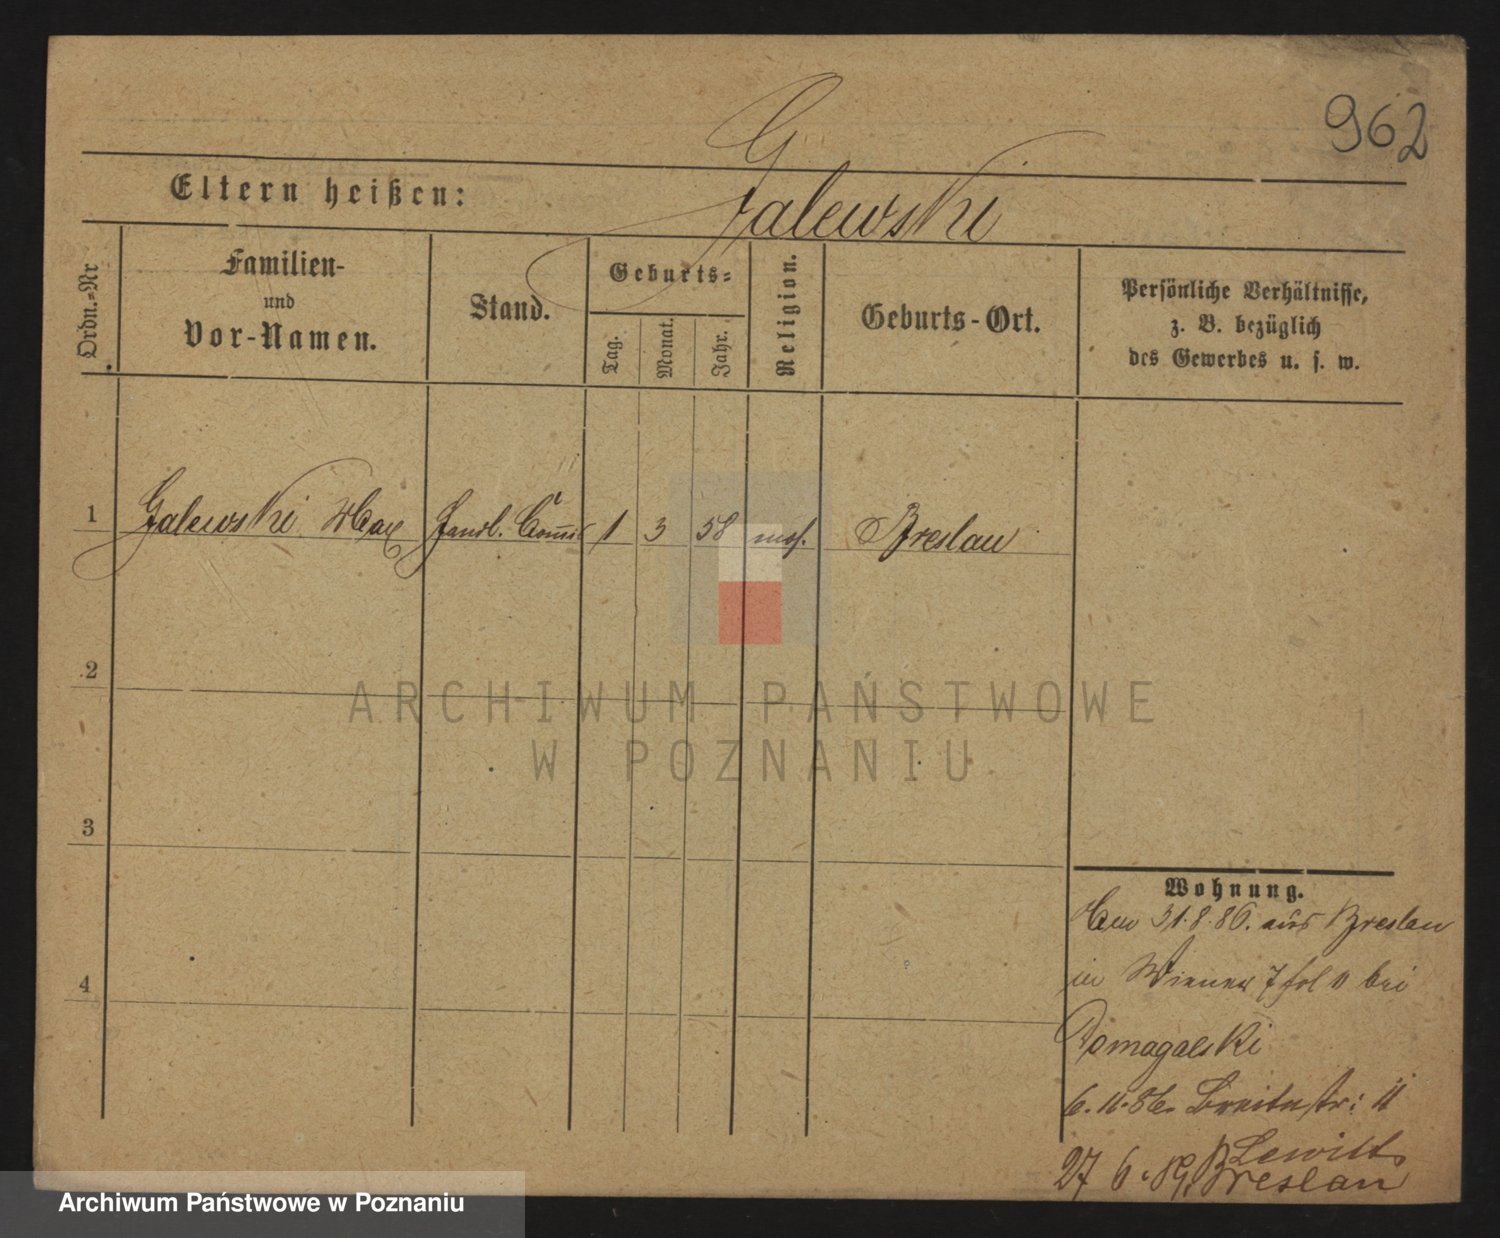 962
Eltern heißen:
Galewski
Ordn.=Nr
Familien-
und
Vor-Namen.
Stand.
Geburts=
Tag.
Monat.
Jahr.
Religion.
Geburts-Ort.
Persönliche Verhältnisse,
z. B. bezüglich
des Gewerbes u. s. w.
1 Galewski Max Handl. Commis 1 3 58 mos. Breslau
2
3
4
ARCHIWUM PAŃSTWOWE
W POZNANIU
Wohnung.
31.8.86. aus Breslau
in Wiener bei
Domagalski
6.11.86. Breitestr: 11
Lewitt
27 6.89. Breslau
Archiwum Państwowe w Poznaniu